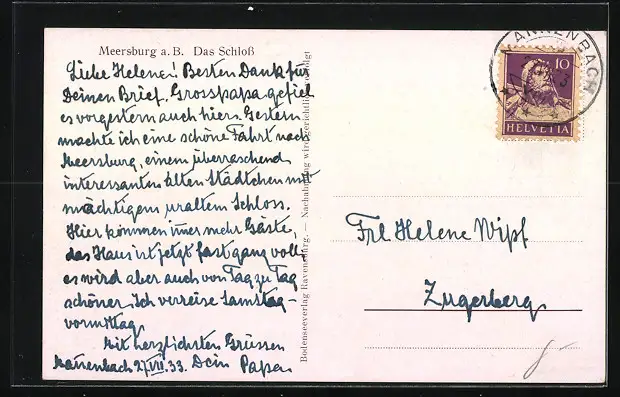 Meersburg a. B.  Das Schloß
Liebe Helene! Besten Dank für
Deinen Brief. Grosspapa gefiel
es vorgestern auch hier. Gestern
machte ich eine schöne Fahrt nach
Meersburg, einem überraschend
interessanten alten Städtchen mit
mächtigem uraltem Schloss.
Hier kommen immer mehr Gäste,
das Haus ist jetzt fast ganz voll
es wird aber auch von Tag zu Tag
schöner. Ich verreise Samstag-
vormittag.
Mit herzlichsten Grüssen
Mannenbach 27.VII.33. Dein Papa
Bodenseeverlag Ravensburg. — Nachahmung wird gerichtlich verfolgt
MANNENBACH
10
HELVETIA
Frl. Helene Wipf
Zugerberg